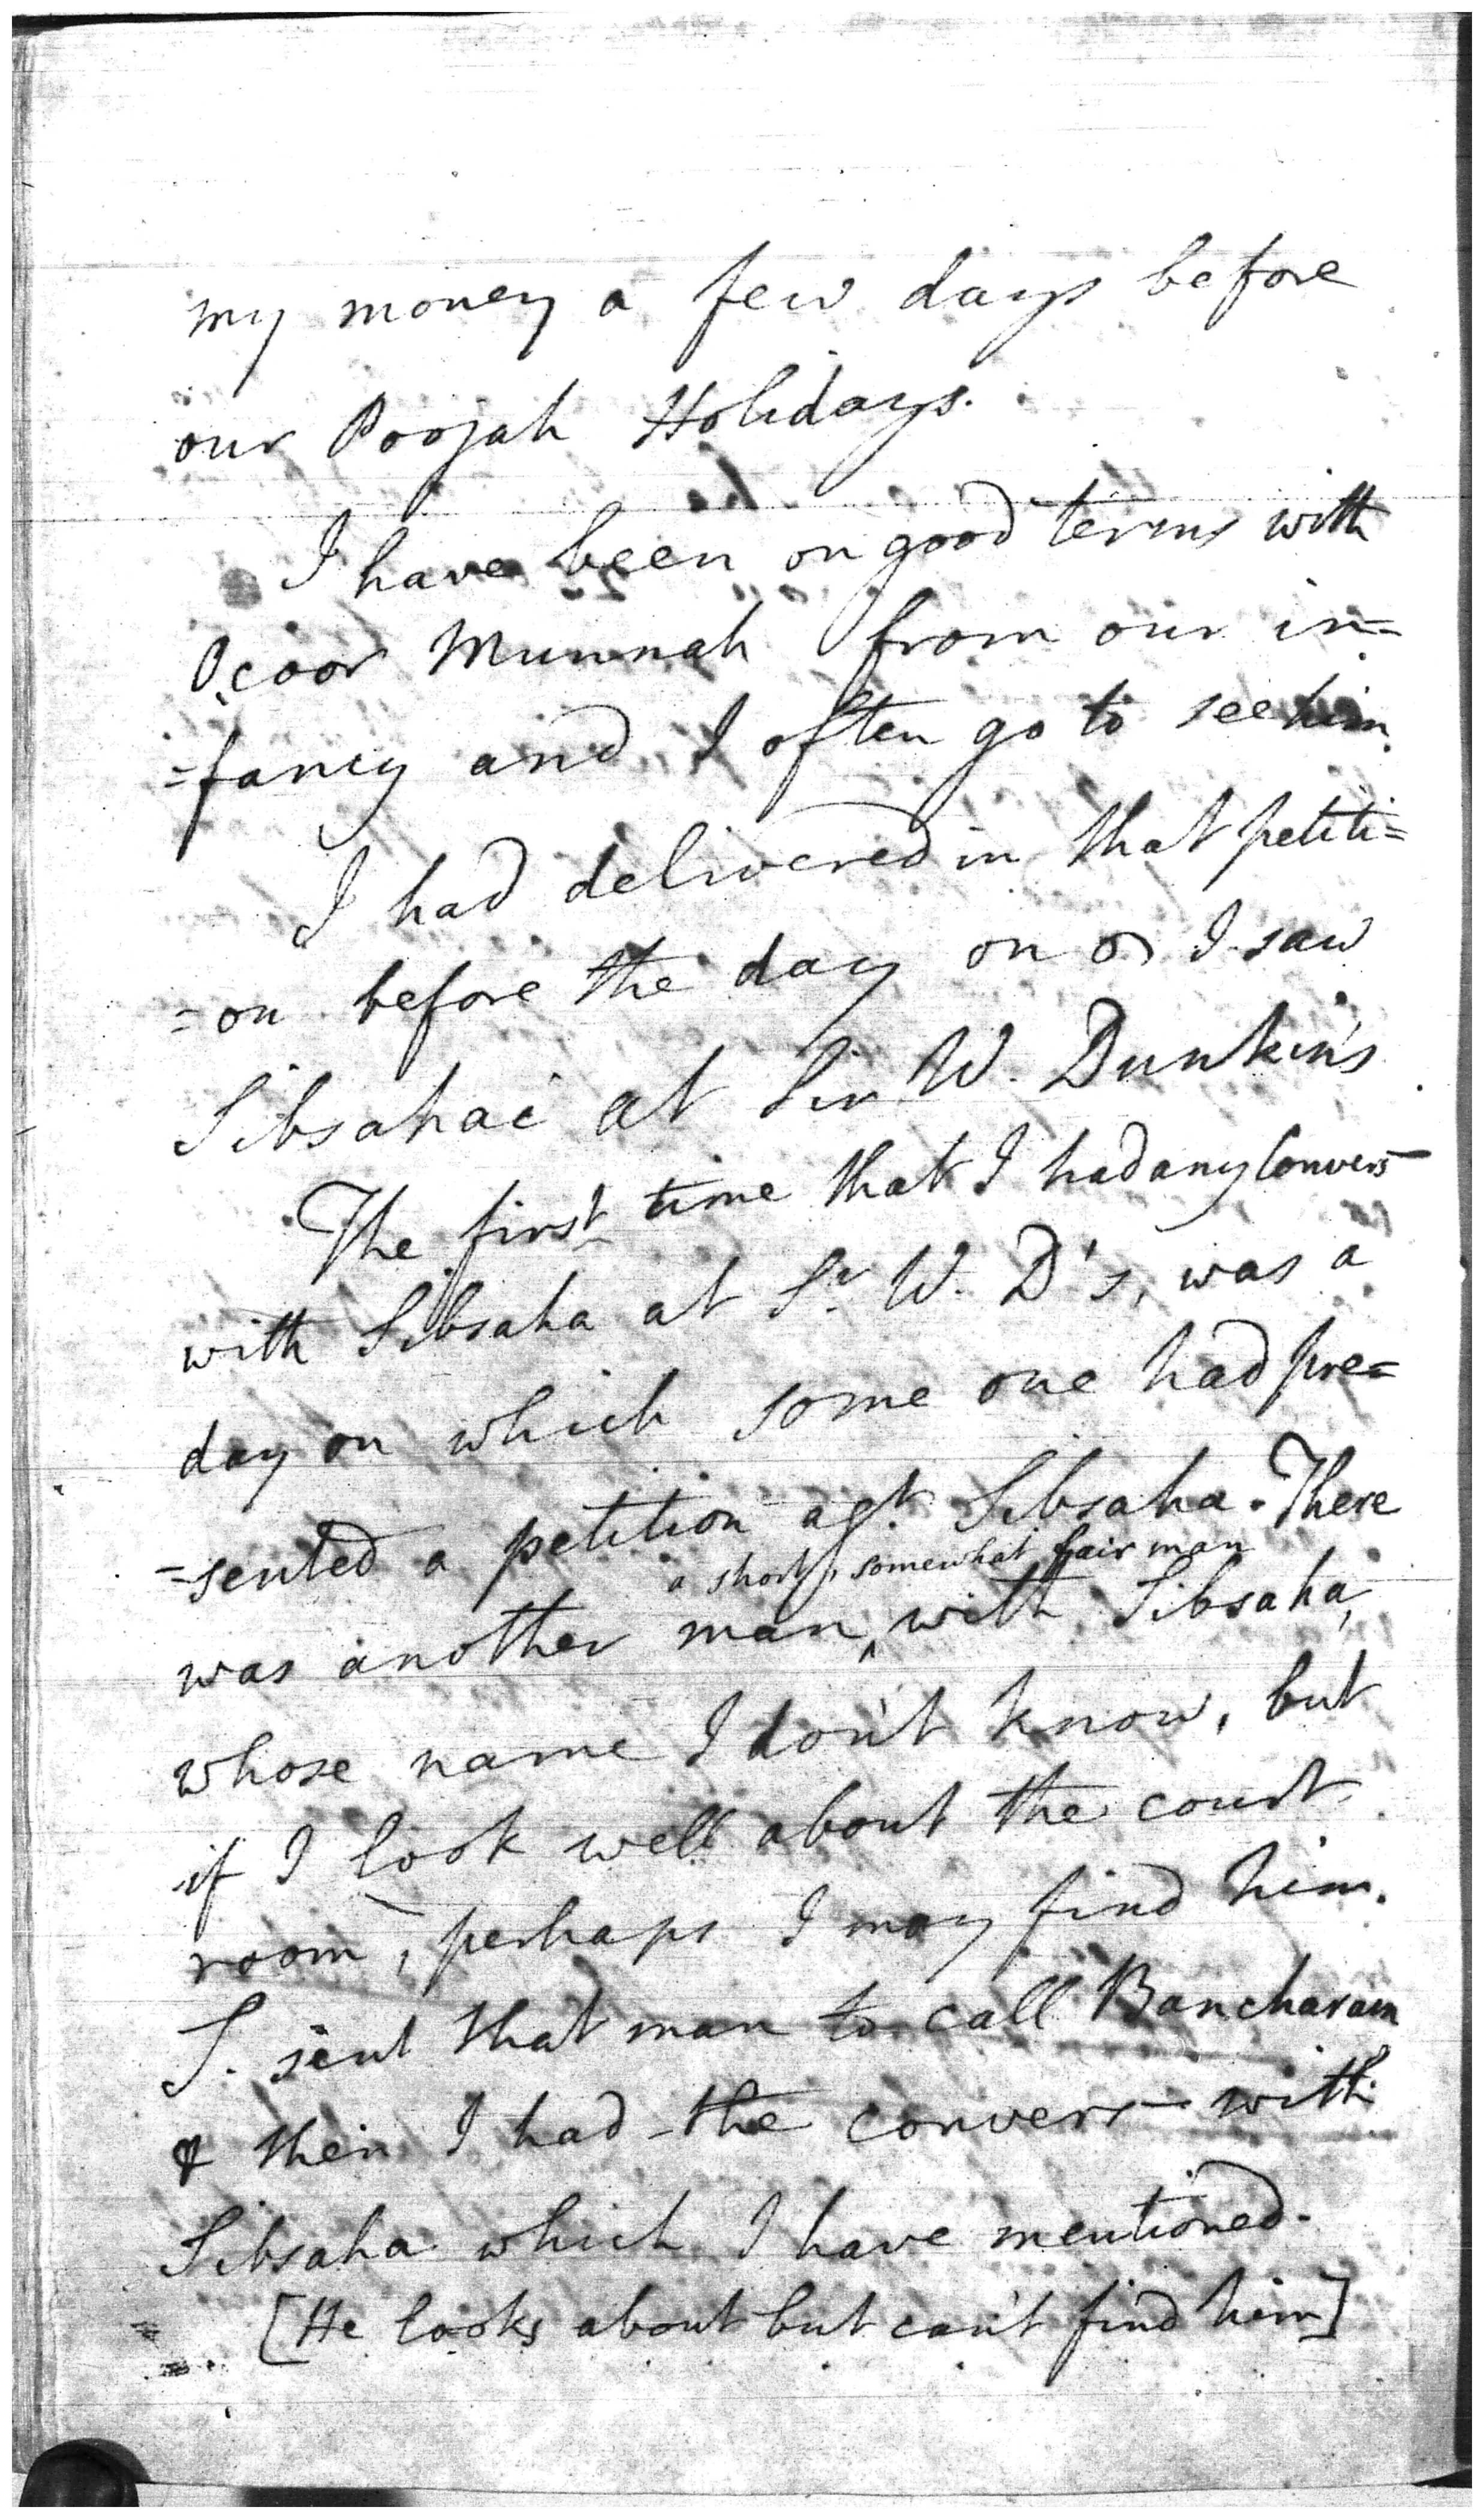 my money a few days before
our Poojah Holidays.
I have been on good terms with
Munnah from our in=
=fancy and I often go to see him.
I had delivered in that petiti=
=on before the day on I saw
Sibsahai at Sir W. Dunkin's
The first time that I had any Convers—
with Sibsaha at Sr. W. D's, was a
day on which some one had pre=
=sented a petition agt. Sibsaha. There
a short, somewhat fair man
was another man ^ with Sibsaha,
whose name I don't know, but
if I look well about the court
room, perhaps I may find him.
S. sent that man to call Bancharam
& then I had the convers— with
Sibsaha which I have mentioned.
[He looks about but can't find him]